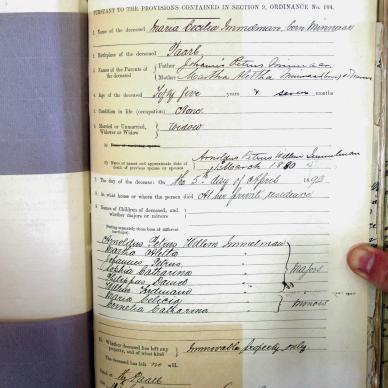 PURSUANT TO THE PROVISIONS CONTAINED IN SECTION 9, ORDINANCE No. 104.
1. Name of the deceased Maria Cecilia Immelman, born Minnaar
2. Birthplace of the deceased Paarl
3. Names of the Parents of the deceased
Father Johannis Petrus
Mother Martha Aletta
4. Age of the deceased Fifty five years & seven months
Condition in life (occupation) None
Married or Unmarried, Widower or Widow Widow
(b) Name or names and approximate date of death of previous spouse or spouses
Arnoldus Petrus Willem Immelman
March 18
7. The day of the decease: On the 5th day of April 1893
At what house or where the person died At her private residence
Names of Children of deceased, and whether majors or minors
(stating separately those born of different marriages).
Arnoldus Petrus Willem Immelman
Martha Aletta "
Johannes Petrus "
Sophia Catharina "
Philippus David "
Willem Ferdinand "
Maria Celicia "
Cornelia Catharina "
Majors
Minors
Whether deceased has left any property, and of what kind Immovable property only.
The deceased has left no will.
Paarl